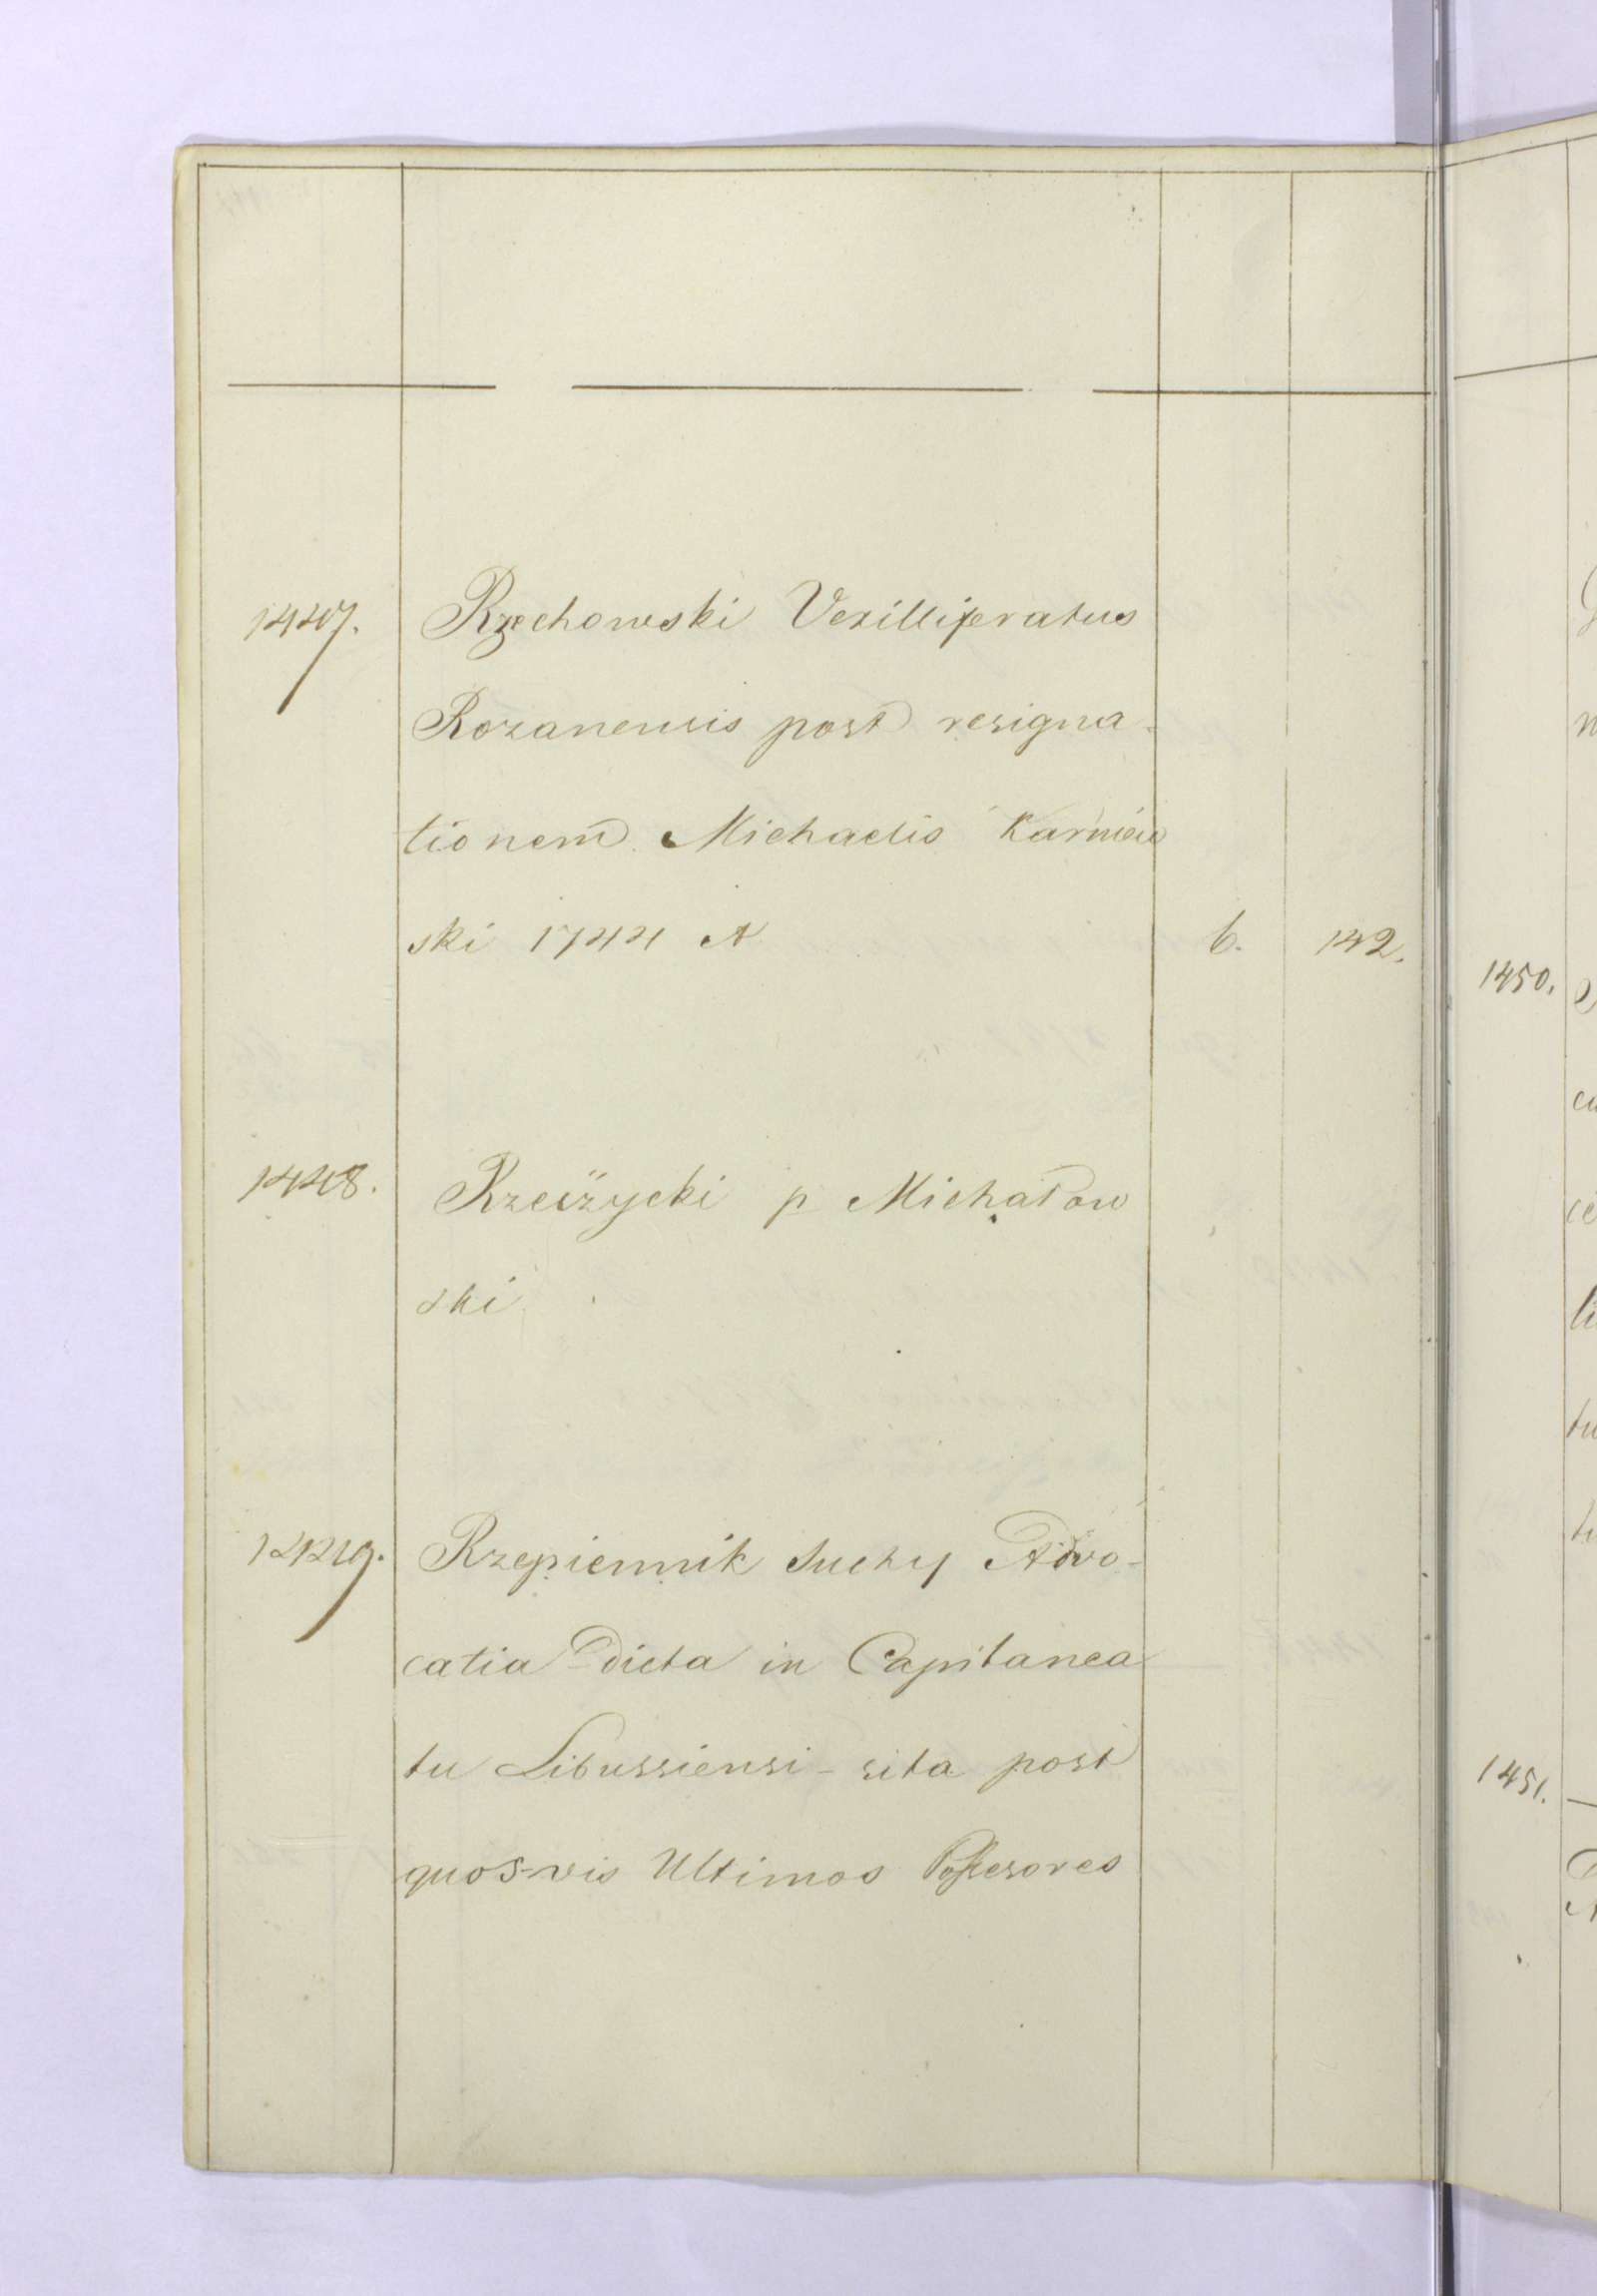 1447. Rzechowski Vexilliferatus
Rozanensis post resigna-
tionem Michaelis Karniew
ski 1744 A 6. 142.
1448. Rzeczycki p Michałow
ski
1449. Rzepiennik Suchy Advo-
catia dicta in Capitanea
tu Libussiensi - sita post
quos-vis Ultimos Possesores
1450.
1451.